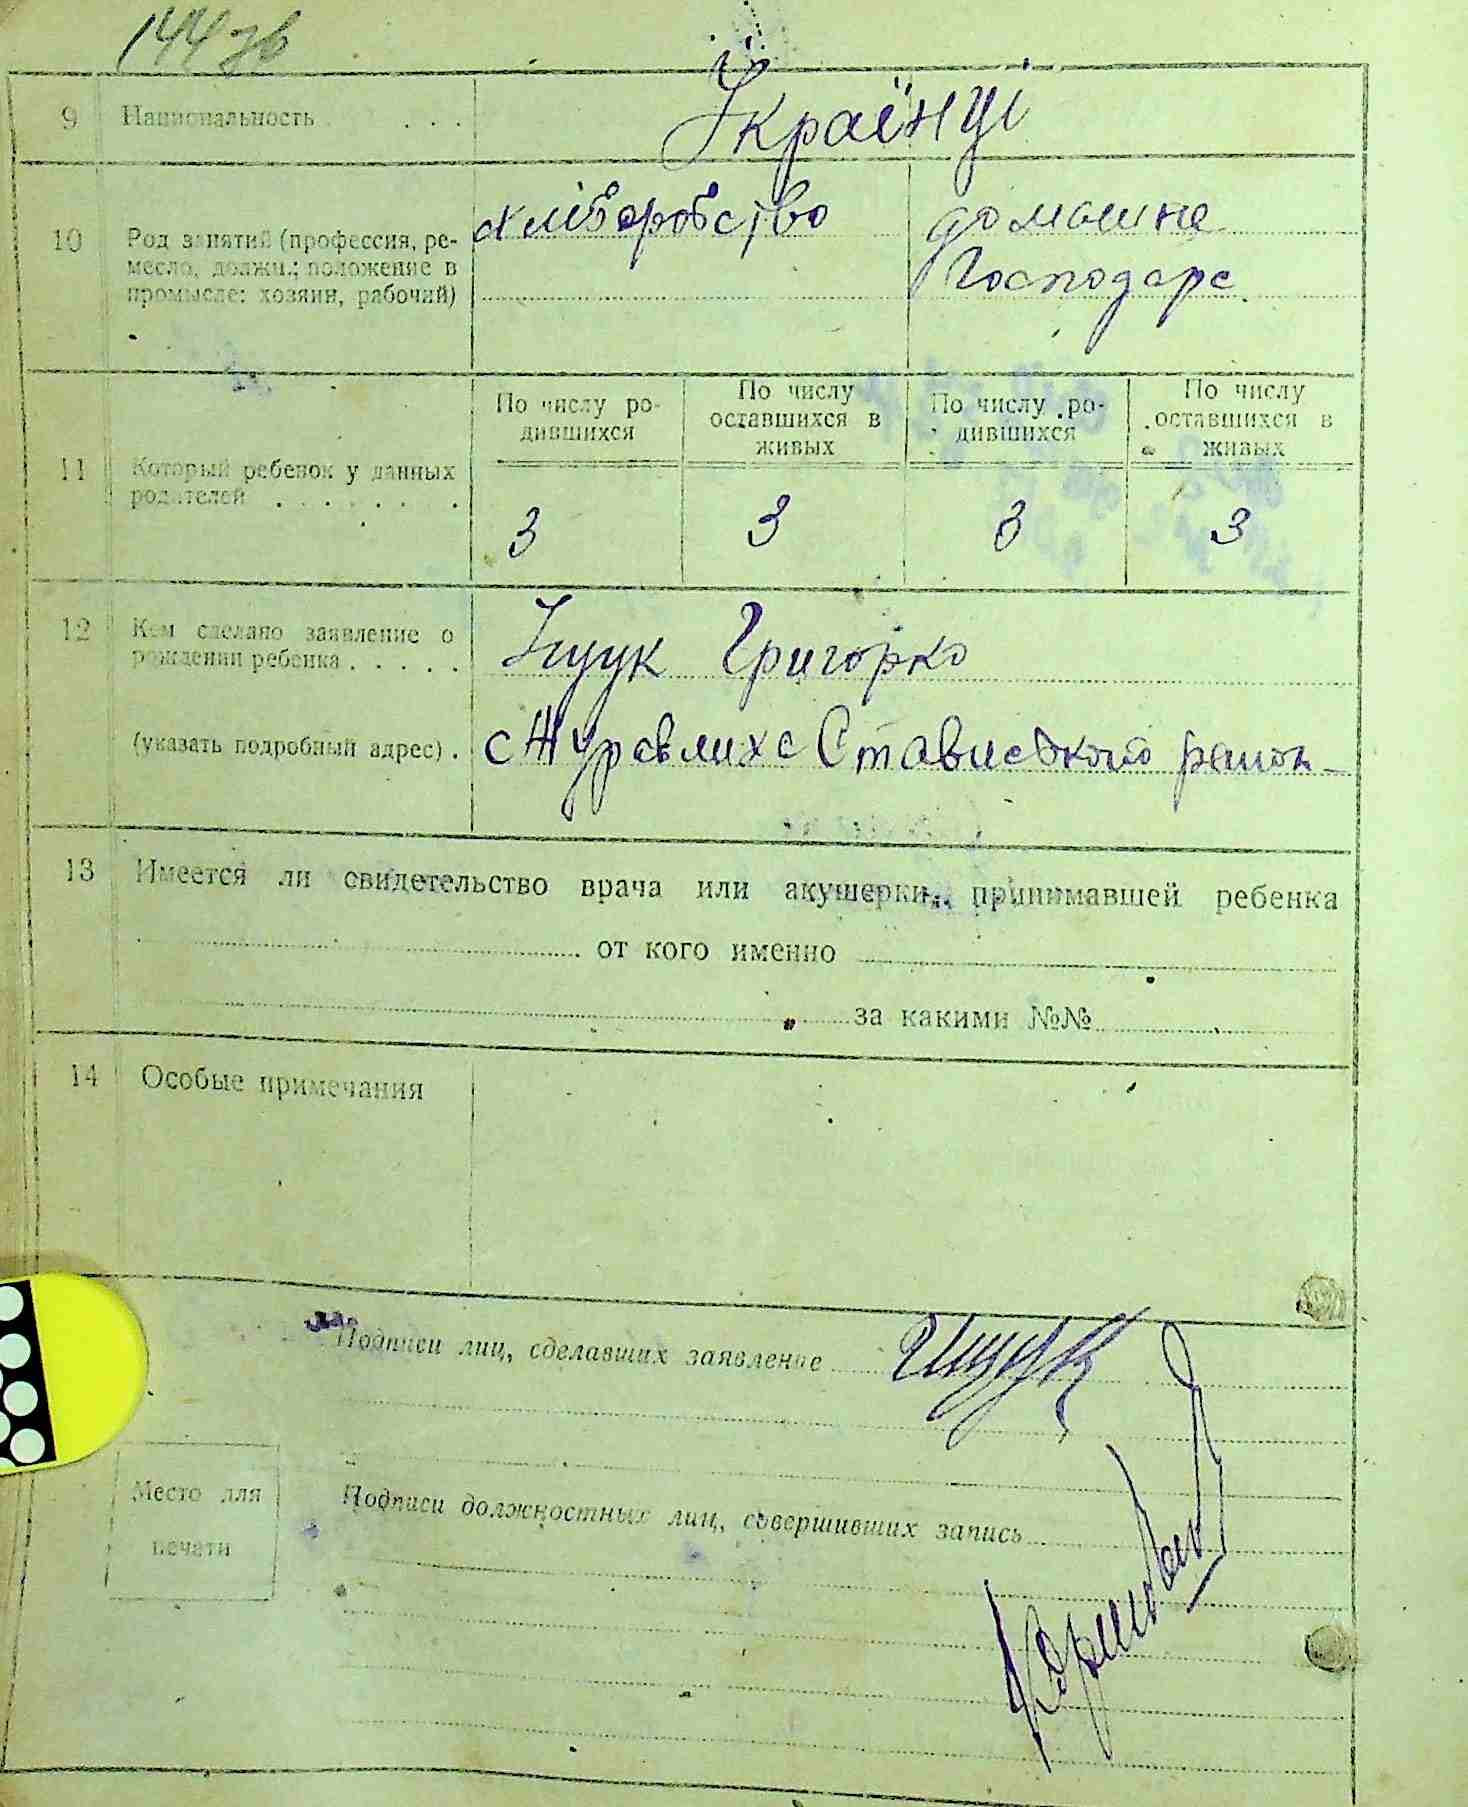 144 зв
9 Национальность . . .
Українці
10 Род занятий (профессия, ре-
месло, должн.; положение в
промысле: хозяин, рабочий)
хліборобство
домашне
Господарс
11 Который ребенок у данных
родителей . . . . . . .
По числу ро-
дившихся
По числу
оставшихся в
живых
По числу ро-
дившихся
По числу
оставшихся в
живых
3 3 3 3
12 Кем сделано заявление о
рождении ребенка . . . . .
Григорко
(указать подробный адрес) .
с Журавлиха Стависького район
13 Имеется ли свидетельство врача или акушерки, принимавшей ребенка
от кого именно
за какими №№
14 Особые примечания
Подписи лиц, сделавших заявление
Іщук
Место для
печати
Подписи должностных лиц, совершивших запись